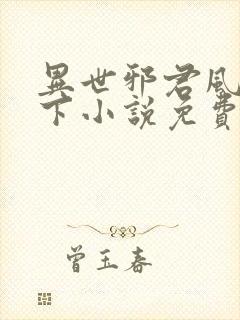 異世邪君風
下小說免費
曾玉春